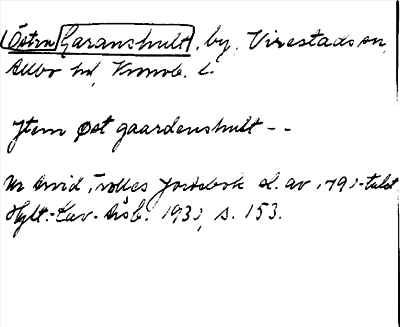 Östra Garanshult, by, Virestads sn,
Allbo hd, Kronob. l.
Item Øst gaardenshult - -
Ur Arvid Trolles jordebok sl. av 1490-talet
Hylt.-Cav. årsb. 1930, s. 153.